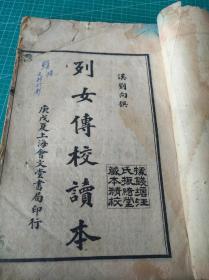 漢劉向撰
據錢塘汪
氏振綺堂
藏本精校
列女傳校讀本
庚戌夏上海會文堂書局印行